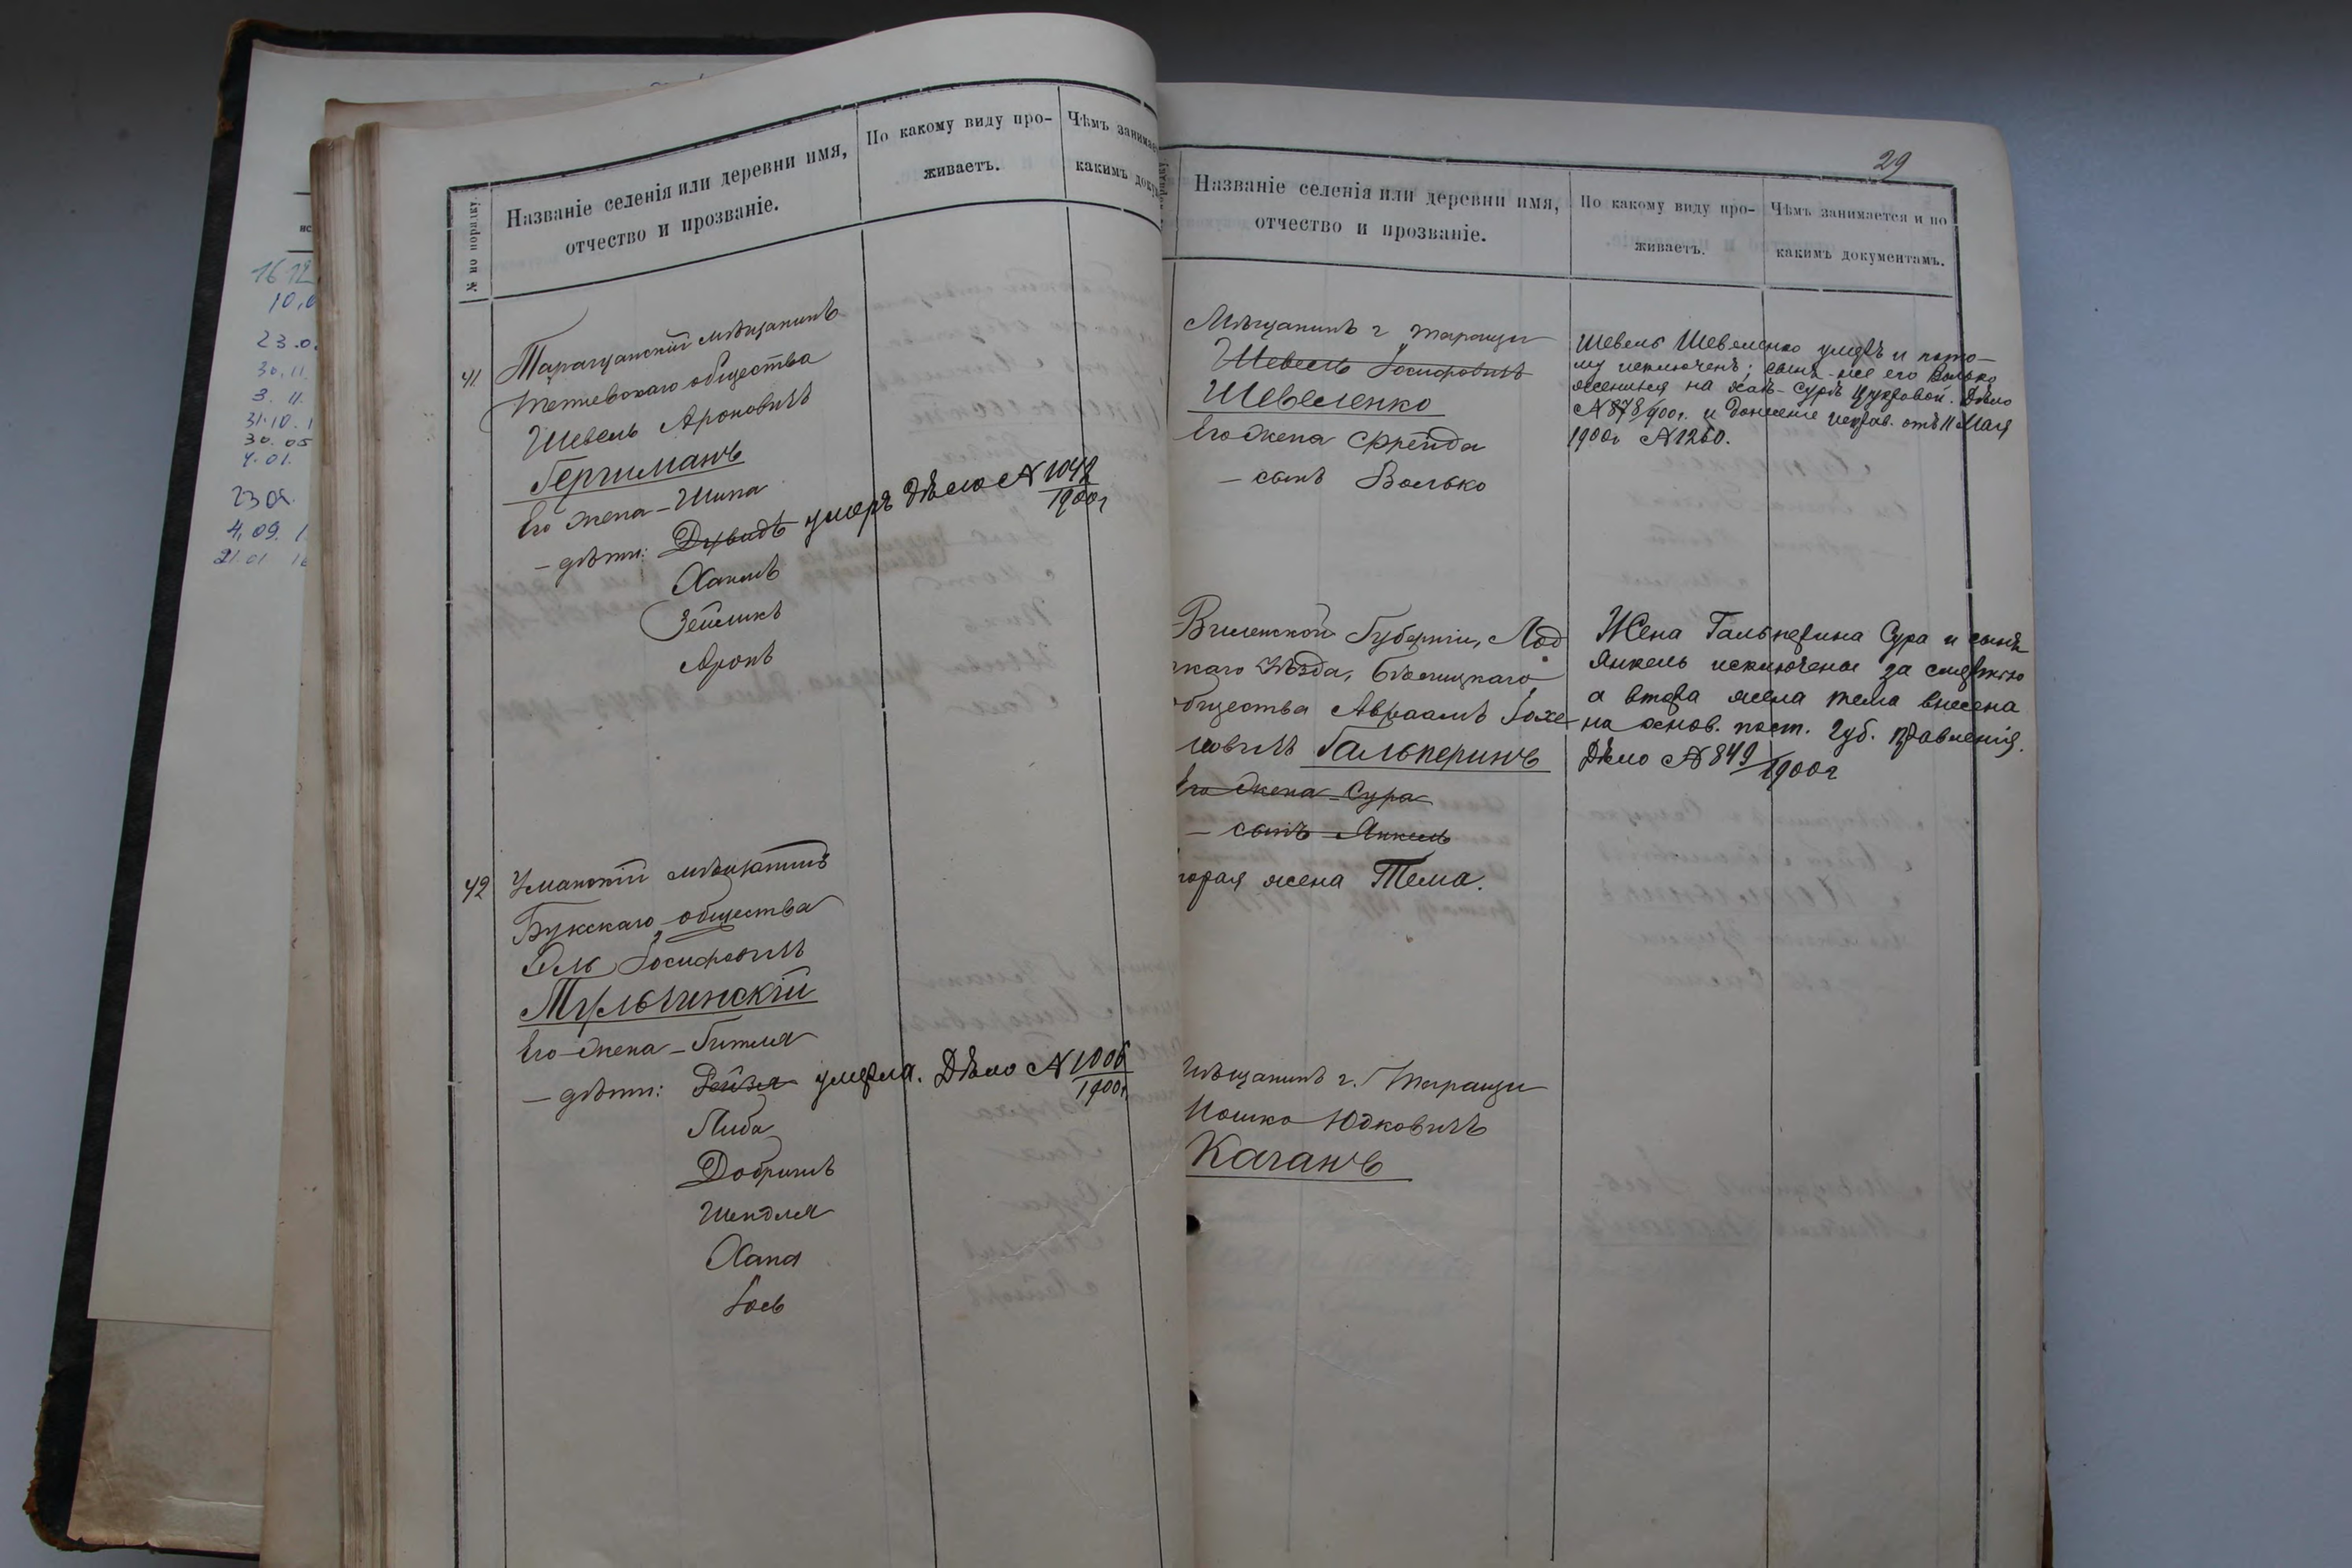 № по порядку.
Названіе селенія или деревни имя,
отчество и прозваніе.
По какому виду про-
живаетъ.
Чѣмъ занимае
какимъ доку
41 Таращанскій мѣщанинъ
Тетіевскаго общества
Шевель Ароновичъ
Гершманъ
Его жена – Шипа
– дѣти: Дувидъ умеръ Дѣло № 1042/1900г
Ханъ
Зейликъ
Аронъ
42 Уманскій мѣщанинъ
Букскаго общества
Іосифовичъ
Тульчинскій
Его жена – Гитля
– дѣти: Рейзя умерла. Дѣло № 1006/1900г.
Либа
Добришъ
Шендля
Хана
Іось
29
Названіе селенія или деревни имя,
отчество и прозваніе.
По какому виду про-
живаетъ.
Чѣмъ занимается и по
какимъ документамъ.
Мѣщанинъ г Таращи
Шевель Іосифовичъ
Шевеленко
Его жена Фрейда
– сынъ Волько
Шевель Шевеленко умеръ и пото-
му исключенъ; сынъ-же его Волько
женился на Хаѣ-Сурѣ Цукровой. Дѣло
№ 878/900г. и донесеніе исправ. отъ 11 Мая
1900г № 1260.
Виленской Губерніи, Лод
скаго Уѣзда, Бѣлицкаго
общества Авраамъ Іохе
левичъ Гальперинъ
Его жена – Сура
– сынъ Янкель
торая жена Тема.
Жена Гальперина Сура и сынъ
Янкель исключены за смертію
а втора жена Тема внесена
на основ. пост. Губ. Правленія.
Дѣло № 849/1900г
Мѣщанинъ г. Таращи
Иошко Юдковичъ
Каганъ